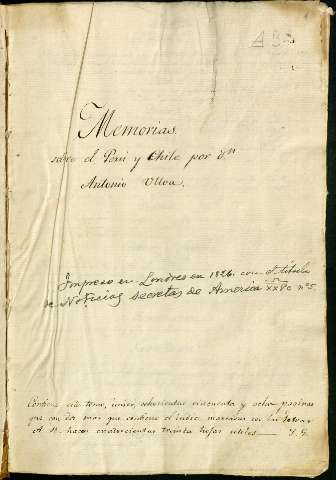 Memorias
sobre el Perú y Chile por Dn
Antonio Ulloa.
Impreso en Londres en 1826. con el título
de Noticias secretas de America XX8c nº5.
Contiene este tomo, único, ochocientas cincuenta y ocho paginas
que con dos mas que contiene el indice marcadas con las letras
A B. hacen cuatrocientas treinta fojas utiles